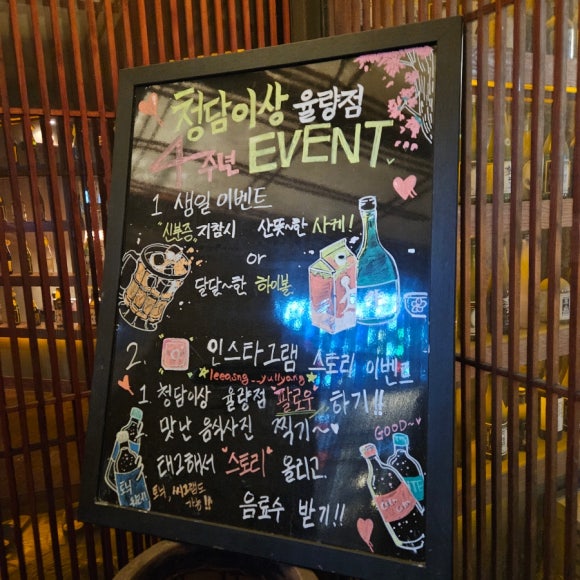 청담이상 율량점
4주년 EVENT
1 생일 이벤트
신분증 지참시 산뜻~한 사케!
or
달달~한 하이볼
2. 인스타그램 스토리 이벤트
leeasng_yullyang
1. 청담이상 율량점 "팔로우" 하기!!
2. 맛난 음식사진 찍기~
GOOD~
3. 태그해서 "스토리" 올리고
음료수 받기!!